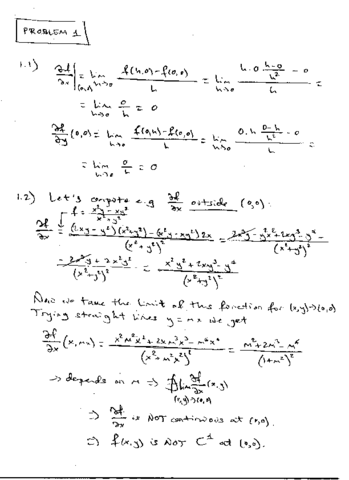 PROBLEM 1
1.1) ∂f/∂x |(0,0) = lim h→0 (f(h,0) - f(0,0))/h = lim h→0 (h·0 (h-0)/h² - 0)/h =
= lim h→0 0/h = 0
∂f/∂y (0,0) = lim h→0 (f(0,h) - f(0,0))/h = lim h→0 (0·h (0-h)/h² - 0)/h =
= lim h→0 0/h = 0
1.2) Let's compute e.g. ∂f/∂x outside (0,0):
f = (x²y - xy²)/(x²+y²)
∂f/∂x = ((2xy - y²)(x²+y²) - (x²y - xy²)2x)/(x²+y²)² = (2x³y - y²x² + 2xy³ - y⁴ -)/(x²+y²)²
(- 2x³y + 2x²y²)/(x²+y²)² = (x²y² + 2xy³ - y⁴)/(x²+y²)²
Now we take the limit of this function for (x,y)→(0,0)
Trying straight lines y = mx we get
∂f/∂x (x,mx) = (x²m²x² + 2xm³x³ - m⁴x⁴)/(x²+m²x²)² = (m²+2m³-m⁴)/(1+m²)²
→ depends on m ⇒ ∄ lim (x,y)→(0,0) ∂f/∂x (x,y)
⇒ ∂f/∂x is NOT continuous at (0,0).
⇒ f(x,y) is NOT C¹ at (0,0).